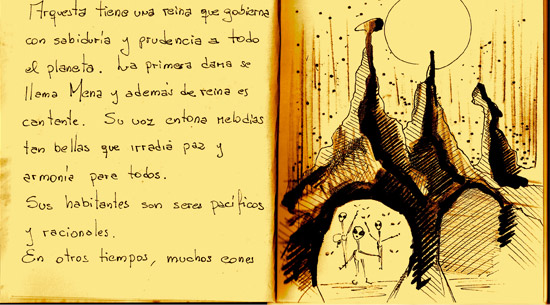 Arquesta tiene una reina que gobierna
con sabiduría y prudencia a todo
el planeta. La primera dama se
llama Mena y además de reina es
cantante. Su voz entona melodías
tan bellas que irradia paz y
armonía para todos.
Sus habitantes son seres pacíficos
y racionales.
En otros tiempos, muchos eones